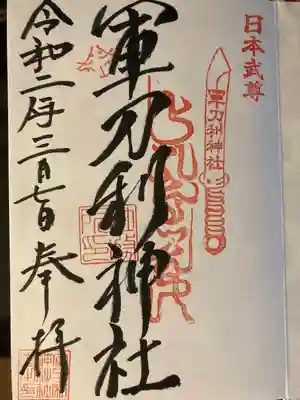 日本武尊
軍刀利神社
軍刀利神社
奉拝
令和二年三月七日